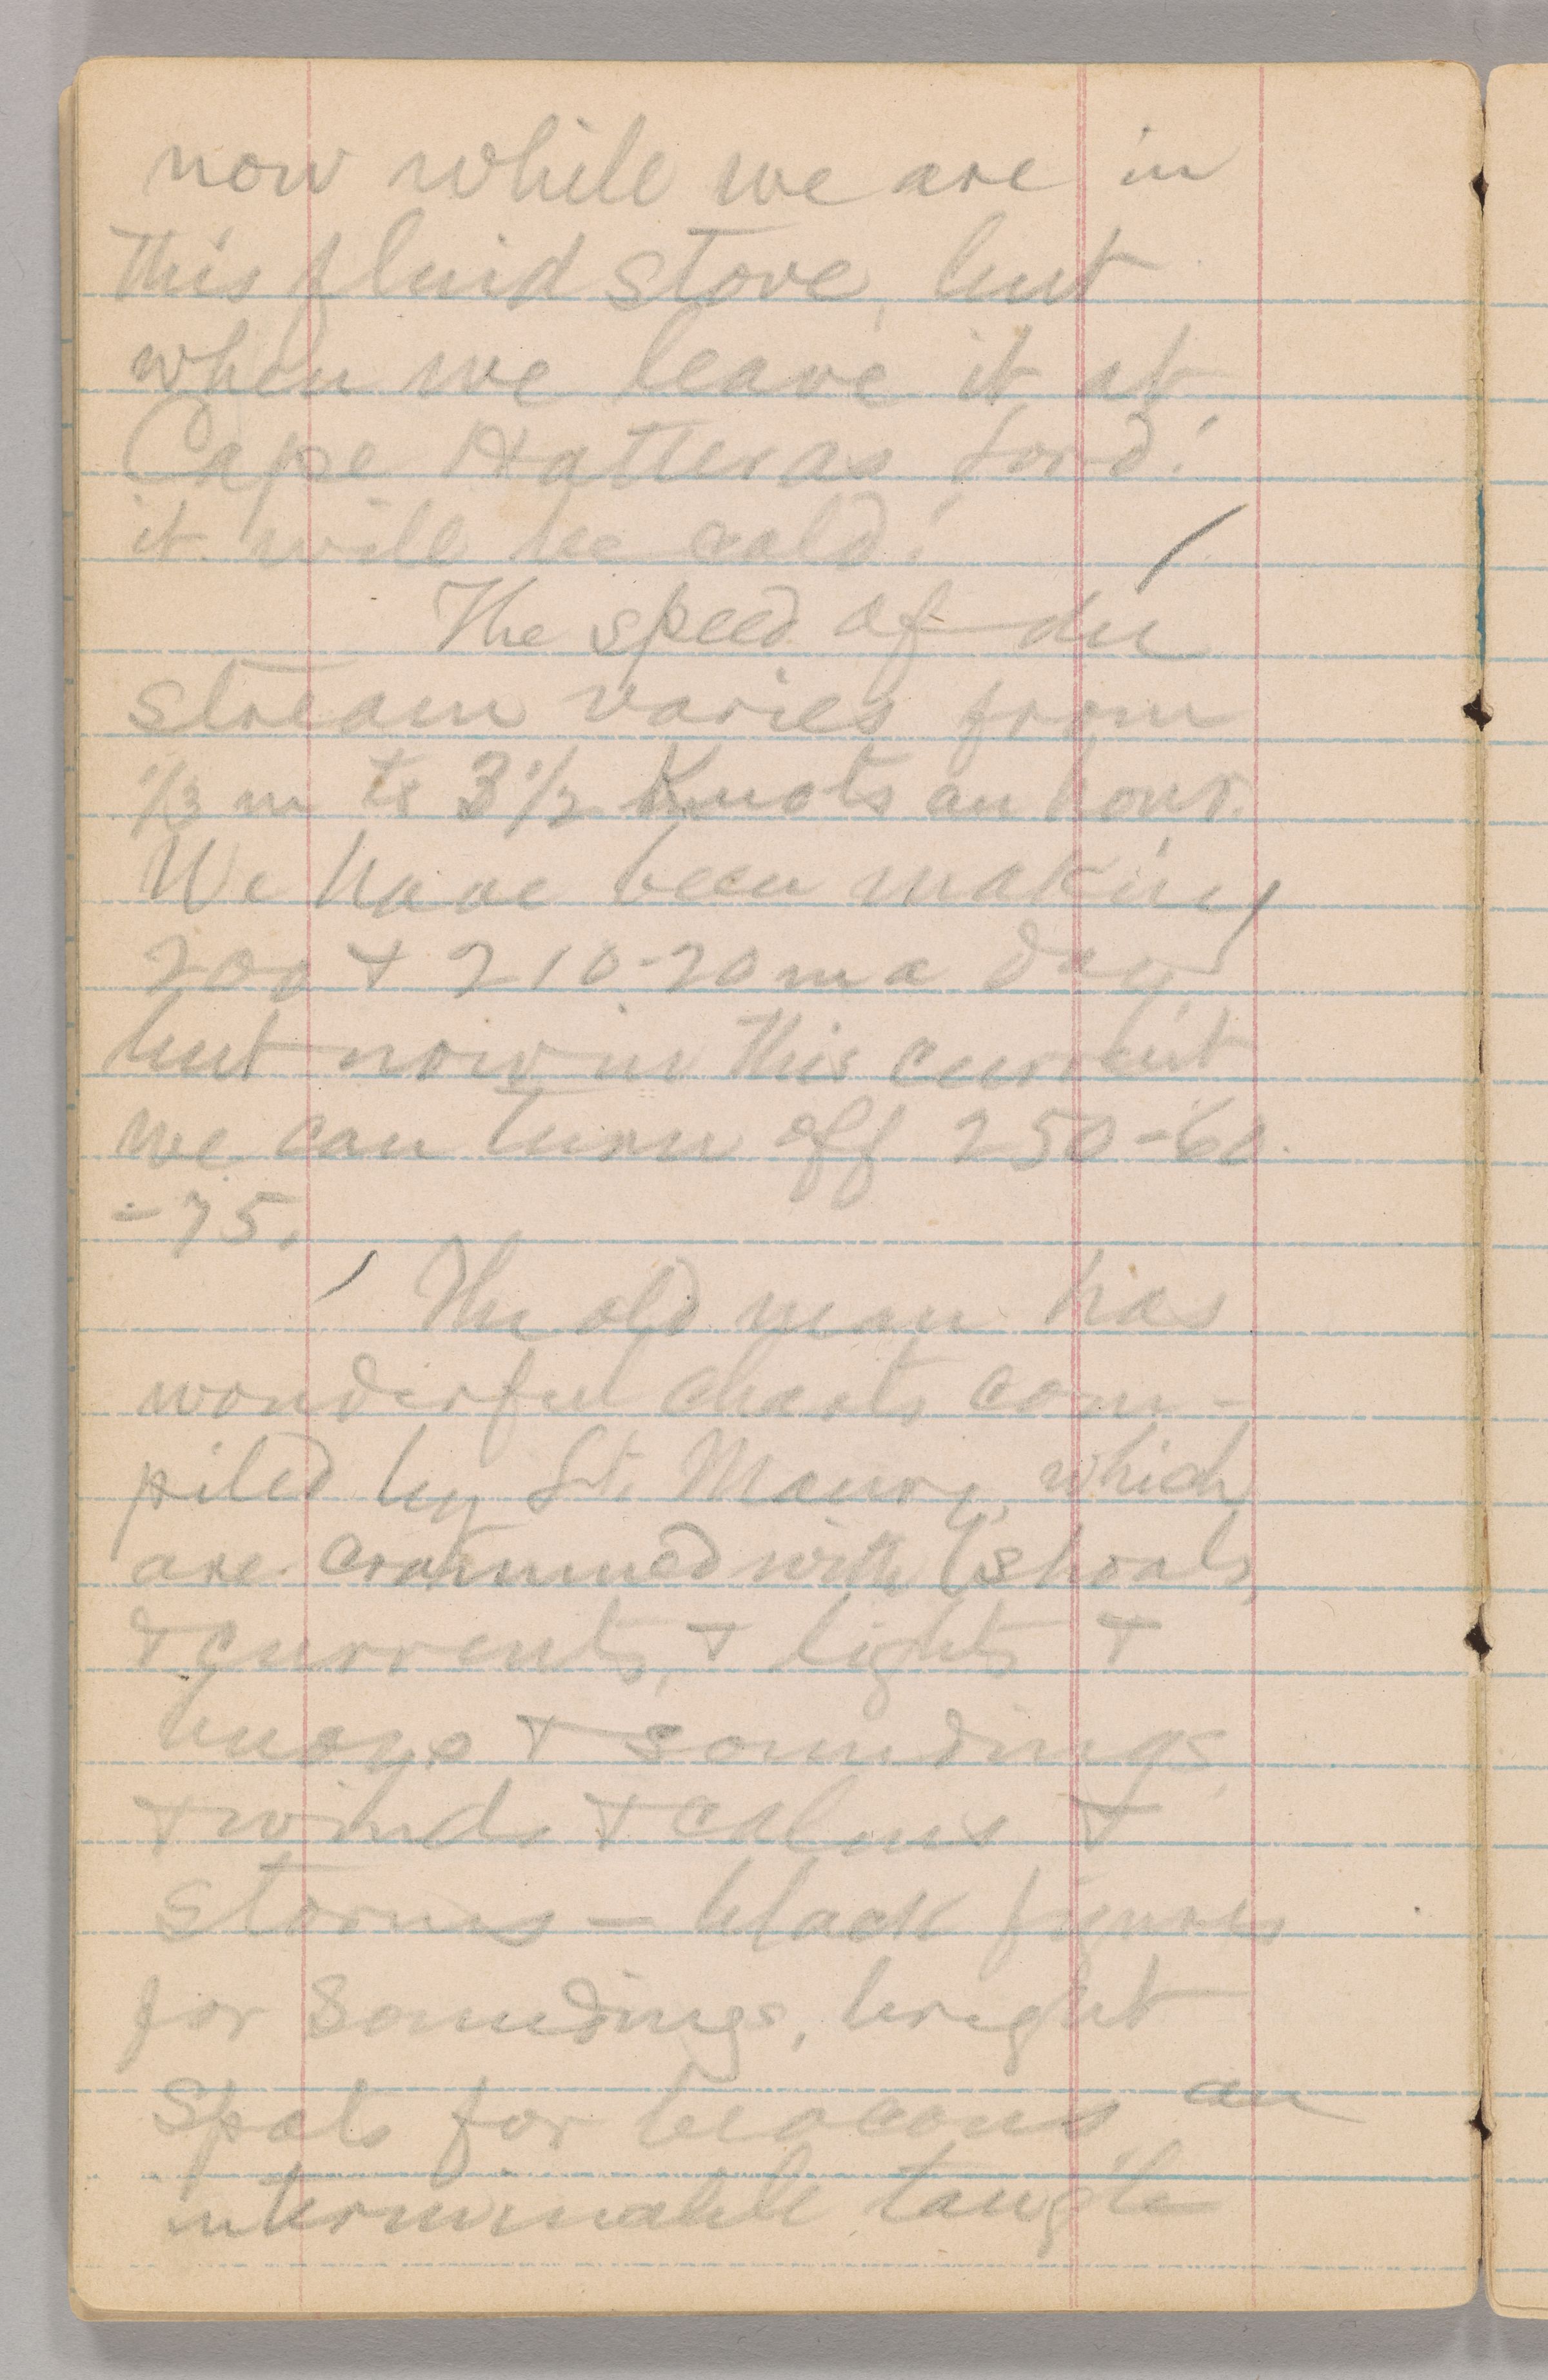 now while we are in
this fluid stove, but
when we leave it at
Cape Hatteras Lord!
it will be cold!
The speed of the
stream varies from
1/3 m to 3 1/2 Knots an hour.
We have been making
200 & 210-20 m a day
but now in this current
we can turn off 250-60
-75.
The old man has
wonderful charts com-
piled by Lt. Maury, which
are crammed with shoals,
& currents, & lights &
buoys & soundings
& winds & calms &
storms – black figures
for soundings, bright
spots for beacons an
interminable tangle